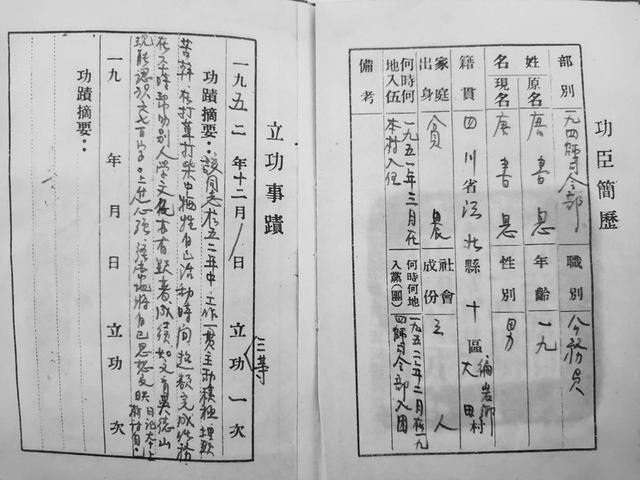 功臣簡歷
部別 一九四師司令部 職別 公務員
姓名 原名 唐書恩 年齡 一九
現名 唐書恩 性別 男
籍貫 四川省江北縣十區 鄉 大田村
家庭出身 貧農 社會成份 工人
何時何地入伍 一九五一年三月在本村入伍 何時何地入黨(團) 一九五二年二月在一九四師司令部入團
備考
立功事蹟
一九五二年十二月 日 立功一次 三等
功蹟摘要：該同志在五二年中，工作一貫主動積極，埋頭
苦幹，在打草打柴中犧牲自己活動時間超額完成任務
在平時幫助別人學文化
現能認識 七百字。上進心強，經常地將自己思想反映
一九 年 月 日 立功 次
功蹟摘要：